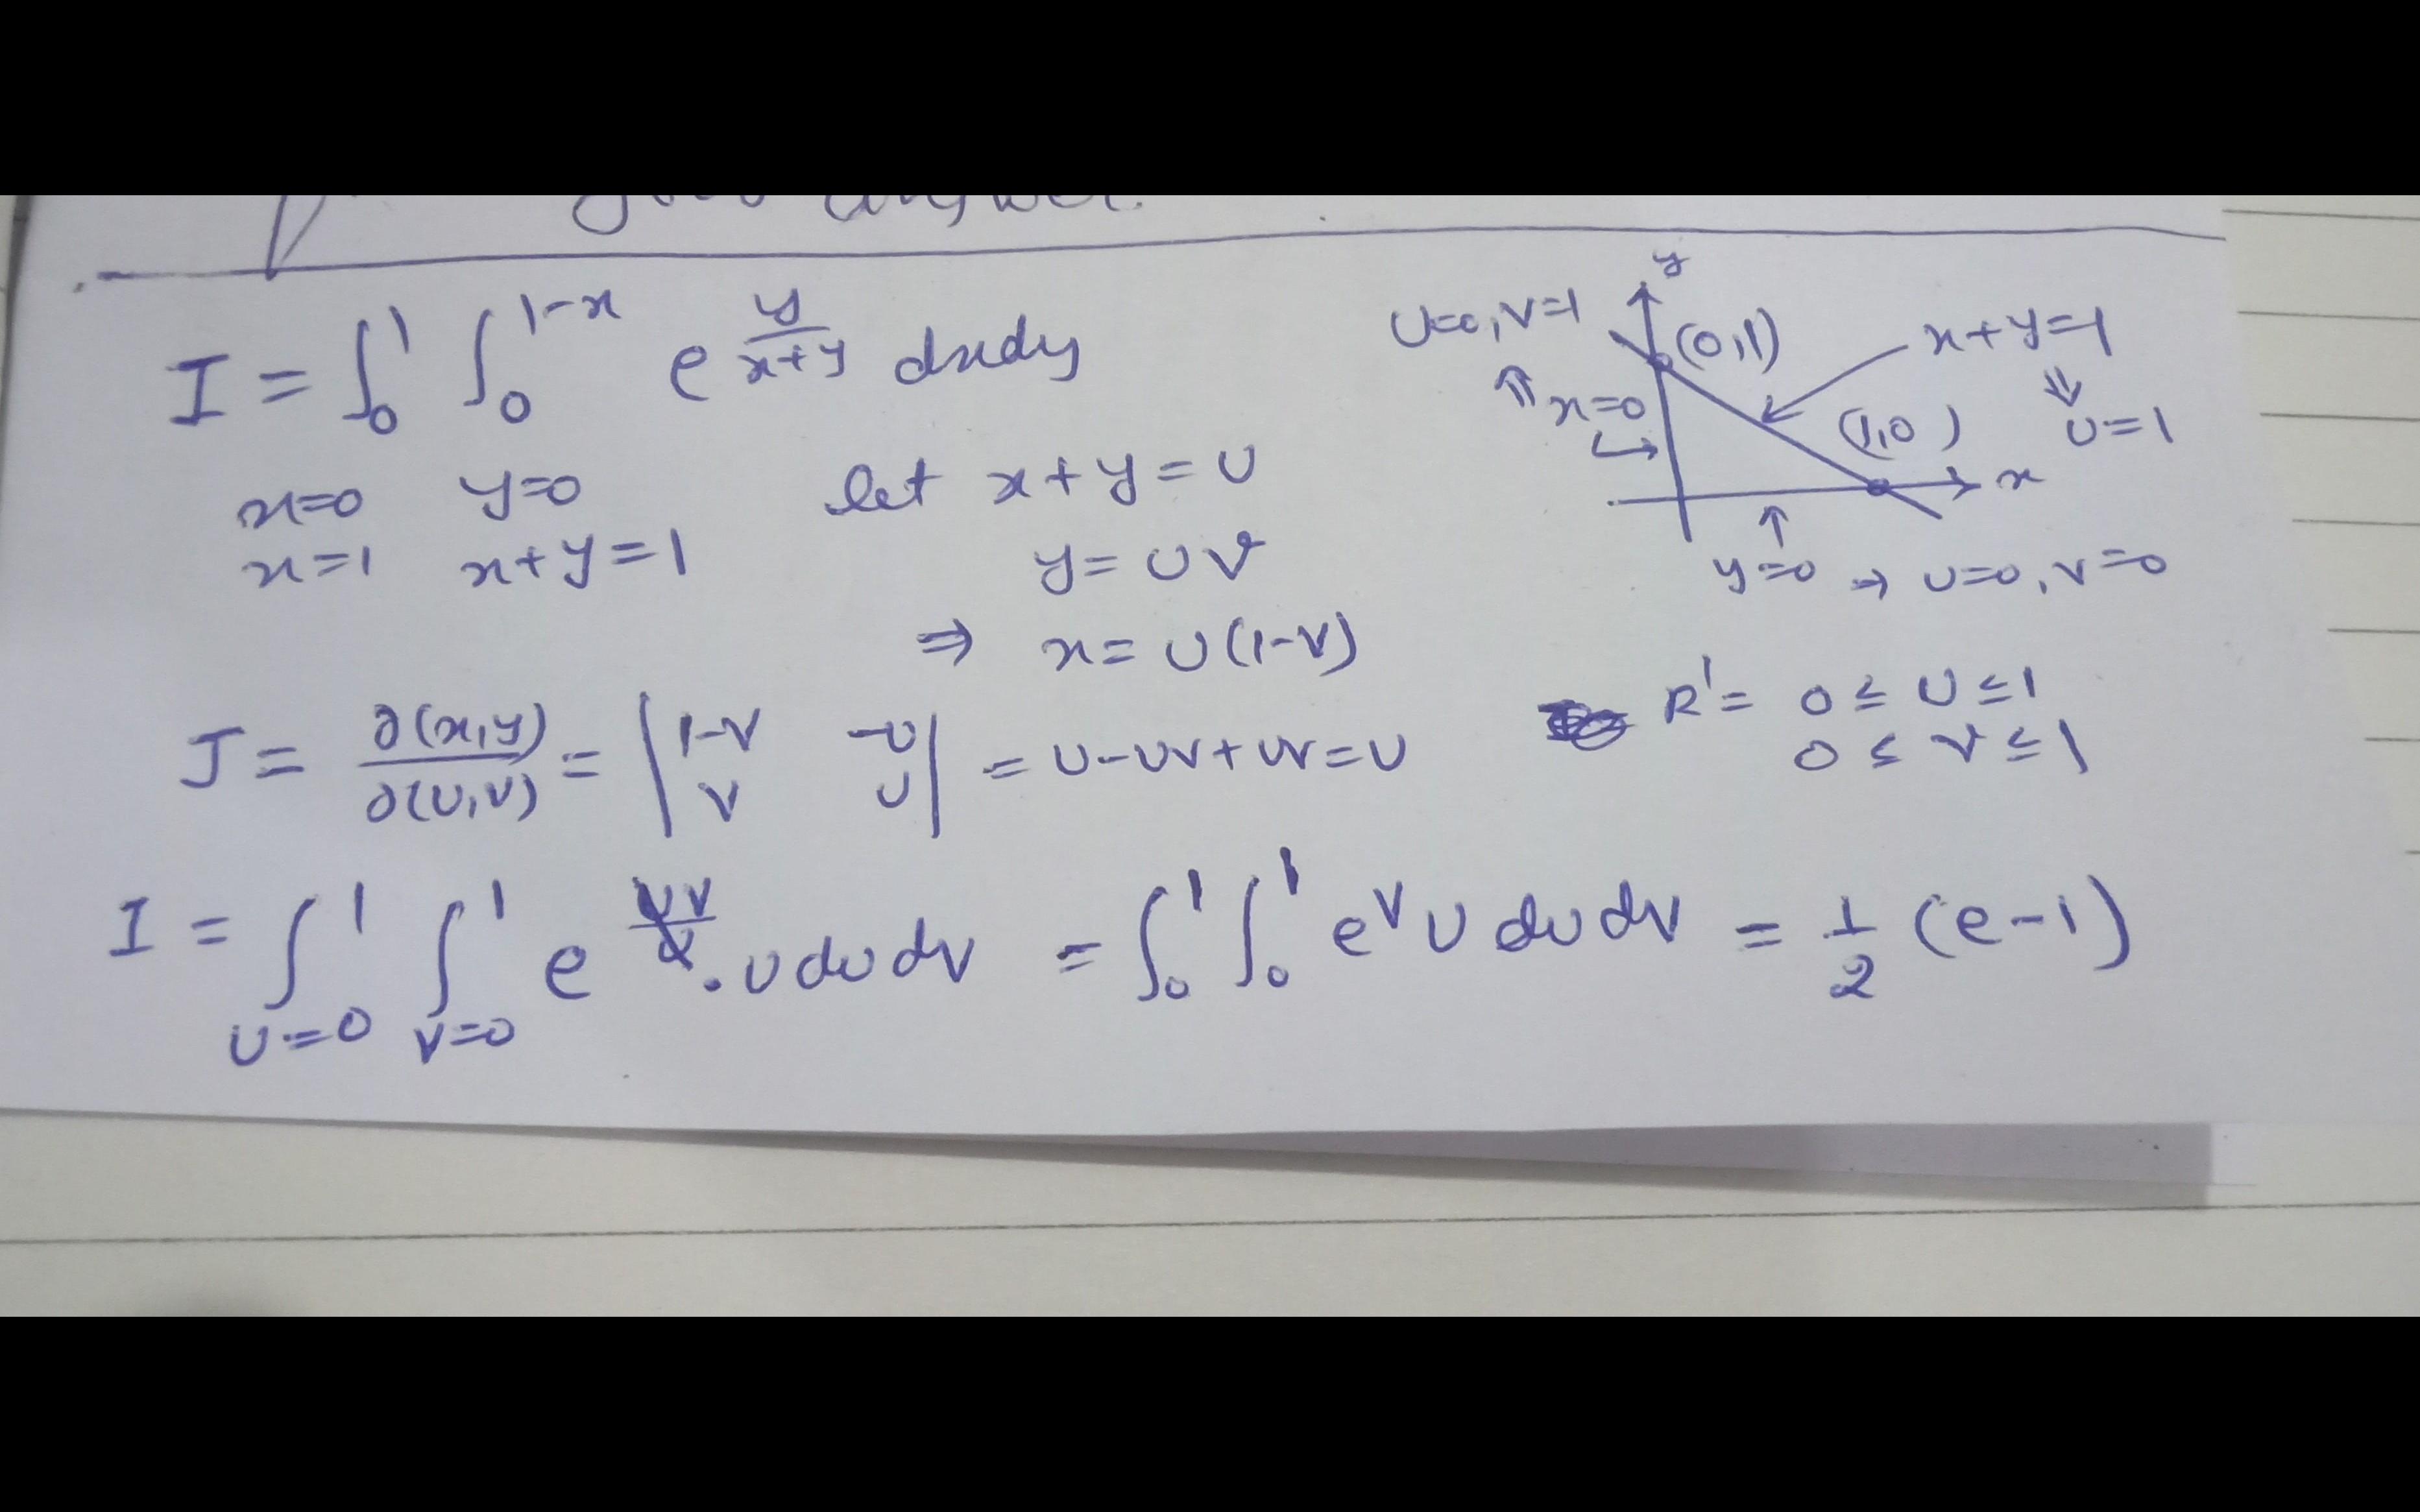 your answer.
I = ∫₀¹ ∫₀^{1-x} e^{y/(x+y)} dxdy
x=0 y=0 let x+y=U
x=1 x+y=1 y=UV
⇒ x=U(1-V)
y
U=0, V=1 (0,1) x+y=1
⇑ x=0 (1,0) ⇓ U=1
x
y=0 → U=0, V=0
J = ∂(x,y)/∂(U,V) = |1-V -U; V U| = U-UV+UV=U
R' = 0 ≤ U ≤ 1
0 ≤ V ≤ 1
I = ∫_{U=0}^{1} ∫_{V=0}^{1} e^{UV/U} . U dU dV = ∫₀¹ ∫₀¹ e^V U dU dV = 1/2 (e-1)